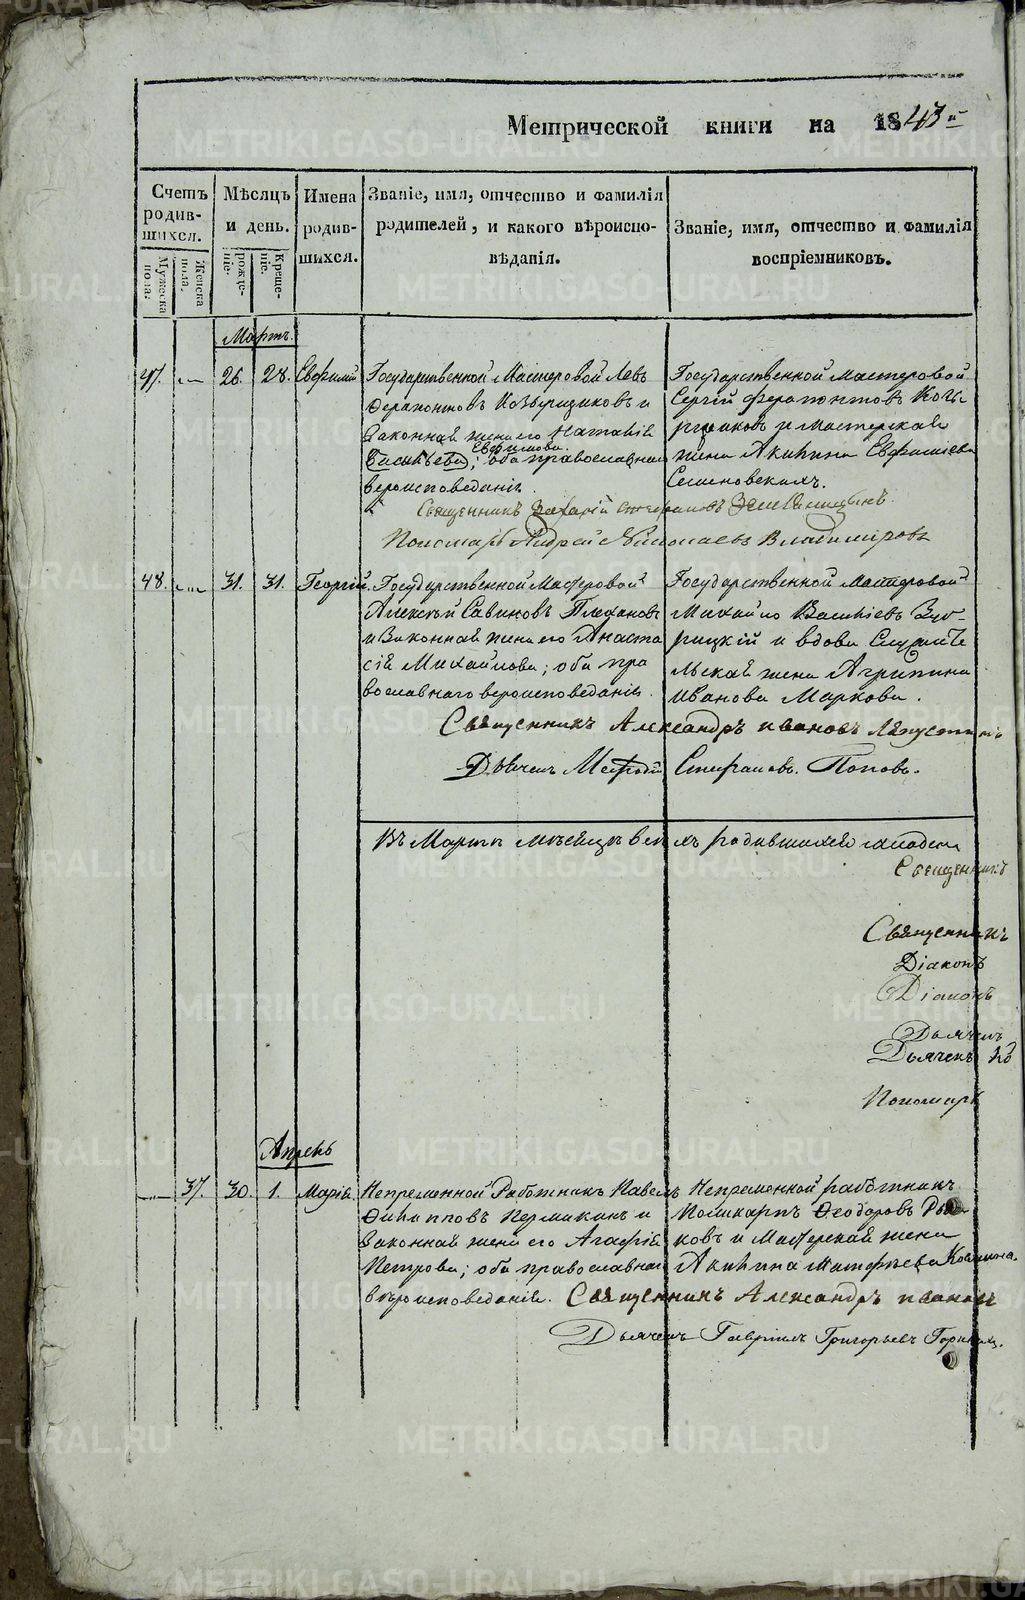 Метрической книги на 1843й
Счетъ родившихся.
Мѣсяцъ и день.
Имена родившихся.
Званіе, имя, отчество и фамилія
родителей, и какого вѣроиспо-
вѣданія.
Званіе, имя, отчество и фамилія
воспріемниковъ.
Мужеска пола.
Женска пола.
рожде-
ніе.
Креще-
ніе.
Мартъ.
47. — 26. 28. Евфимій
Государственной Мастеровой Левъ
Ферапонтовъ и
Законная жена его Наталія
Евфимова.
Васильева; оба православнаго
вероисповеданія
Государственной мастеровой
Сергій Ферапонтовъ
и мастерская
жена Акилина Евфиміева
Семеновскихъ.
Священникъ Захарій Стефановъ
Пономарь Андрей Николаевъ Владиміровъ
48. — 31. 31. Георгій.
Государственной Мастеровой
Алексѣй Савиновъ Плехановъ
и Законная жена его Анаста
сія Михайлова; оба пра
вославнаго вероисповеданія.
Государственной мастеровой
Михайло Васильевъ Зуб-
рицкій и вдова Служите
льская жена Агрипина
Иванова Маркова.
Священникъ Александръ Ивановъ Ляпустинъ
Дьячекъ Мефодій Стефановъ Поповъ.
Въ Мартѣ месяцѣ всѣхъ родившихся младен
Священникъ
Священникъ
Діаконъ
Діаконъ
Дьячекъ
Дьячекъ
Пономарь
Апрель
— 37. 30. 1. Марія
Непременной Работникъ Павелъ
Филипповъ Пермикинъ и
Законная жена его Агафія
Петрова; оба православнаго
вѣроисповеданія.
Непременной работникъ
Поликарпъ Феодоровъ
ковъ и Мастерская жена
Акилина Матфѣева
Священникъ Александръ Ивановъ
Дьячекъ Гавріилъ Григорьевъ
METRIKI.GASO-URAL.RU